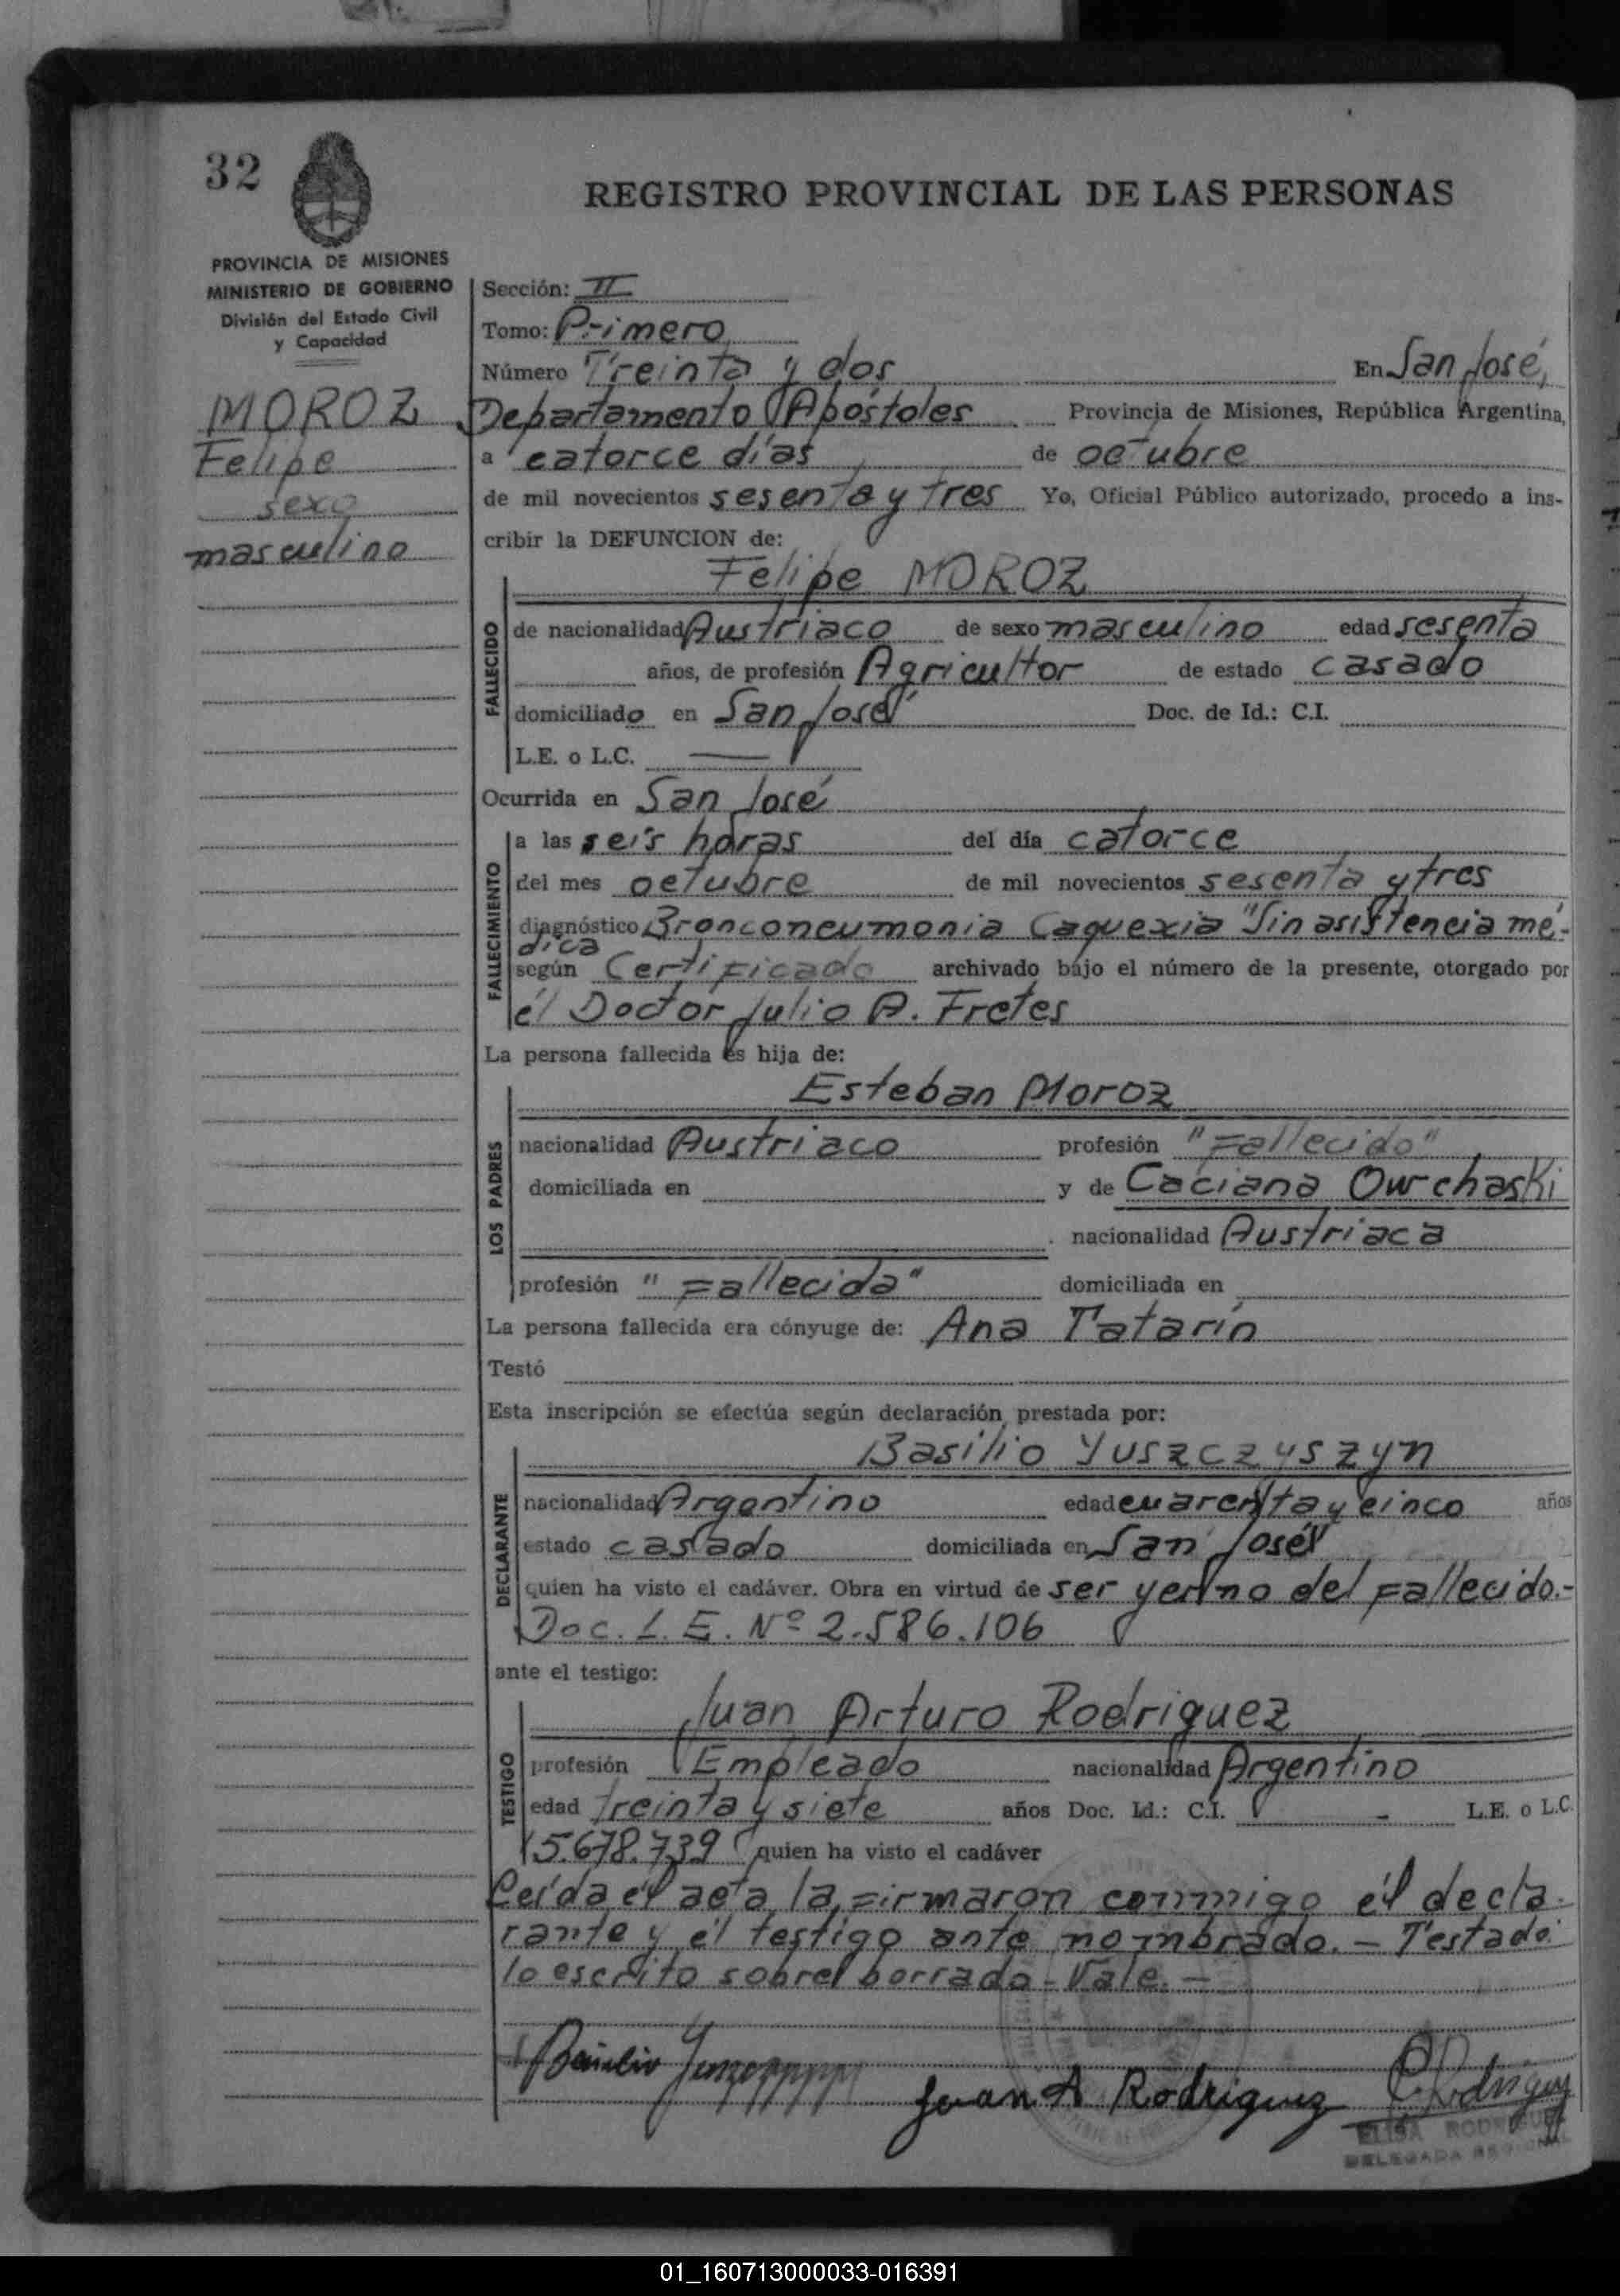 32
REGISTRO PROVINCIAL DE LAS PERSONAS
PROVINCIA DE MISIONES
MINISTERIO DE GOBIERNO
División del Estado Civil
y Capacidad
MOROZ
Felipe
sexo
masculino
Sección: II
Tomo: Primero
Número Treinta y dos En San José,
Departamento Apóstoles Provincia de Misiones, República Argentina,
a catorce días de octubre
de mil novecientos sesenta y tres Yo, Oficial Público autorizado, procedo a ins-
cribir la DEFUNCION de:
Felipe MOROZ
FALLECIDO
de nacionalidad Austriaco de sexo masculino edad sesenta
años, de profesión Agricultor de estado casado
domiciliado en San José Doc. de Id.: C.I.
L.E. o L.C. —
Ocurrida en San José
FALLECIMIENTO
a las seis horas del día catorce
del mes octubre de mil novecientos sesenta y tres
diagnóstico Bronconeumonia Caquexia "Sin asistencia mé-
dica
según Certificado archivado bajo el número de la presente, otorgado por
él Doctor Julio A. Fretes
La persona fallecida es hija de:
LOS PADRES
Esteban Moroz
nacionalidad Austriaco profesión "Fallecido"
domiciliada en y de Caciana Owchaski
nacionalidad Austriaca
profesión "Fallecida" domiciliada en
La persona fallecida era cónyuge de: Ana Tatarín
Testó
Esta inscripción se efectúa según declaración prestada por:
DECLARANTE
Basilio Yuszczyszyn
nacionalidad Argentino edad cuarenta y cinco años
estado casado domiciliada en San José
quien ha visto el cadáver. Obra en virtud de ser yerno del fallecido.-
Doc. L.E. Nº 2.586.106
ante el testigo:
TESTIGO
Juan Arturo Rodriguez
profesión Empleado nacionalidad Argentino
edad treinta y siete años Doc. Id.: C.I. - L.E. o L.C.
5.678.739 quien ha visto el cadáver
Leída él acta, la firmaron conmigo él decla-
rante y él testigo ante nombrado.- Testado
lo escrito sobre borrado-Vale.-
Juan A Rodriguez
Rodriguez
ELISA RODRIGUEZ
DELEGADA REGIONAL
01_160713000033-016391